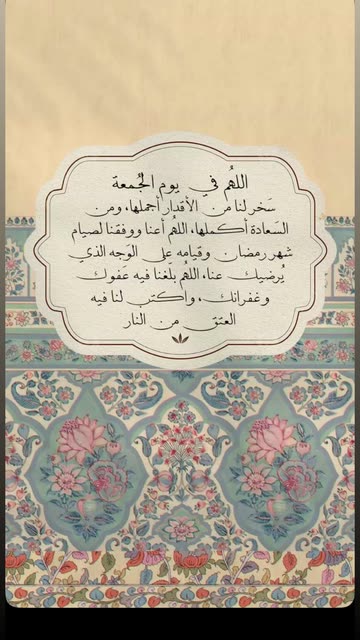 اللهُم في يوم الجُمعة
سَخر لنا من الأقدار أجملها، ومن
السَعادة أكملها، اللهُم أعنا ووفقنا لصيام
شهر رمضان وقيامه على الوَجه الذي
يُرضيك عنا، اللهُم بلغنا فيه عَفوك
وغفرانك، واكتب لنا فيه
العتق من النار